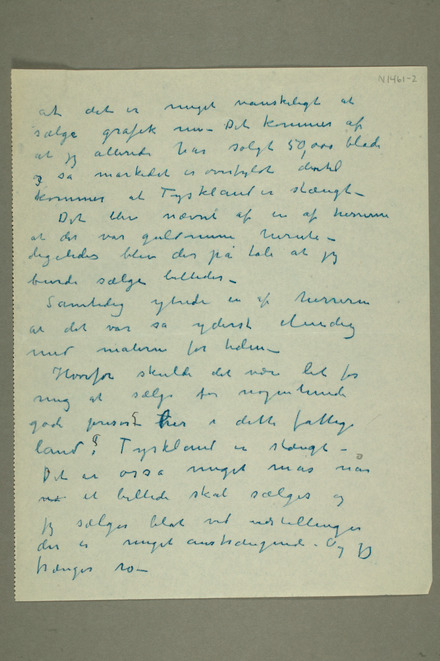 N 1461-2
at det er meget vanskeligt at
sælge grafik nu – Det kommer af
at jeg allerede har solgt 50,000 blade
og så markedet er overfyldt dertil
kommer at Tyskland er stængt –
Det blev nævnt af en af herrerne
at det var guldmine
ledes blev der på tale at jeg
burde sælge billeder –
Samtidig ytrede en af herrerne
at det var så yderst elendig
med malerne for tiden –
Hvorfor skulde det være let for
mig at sælge for nogenlunde
gode priser her i dette fattige
land? Tyskland er stængt –
Det er også meget mas når
et billede skal sælges og
jeg sælger blot ved udstillinger
der er meget anstrængende – Og jeg
trænger ro –